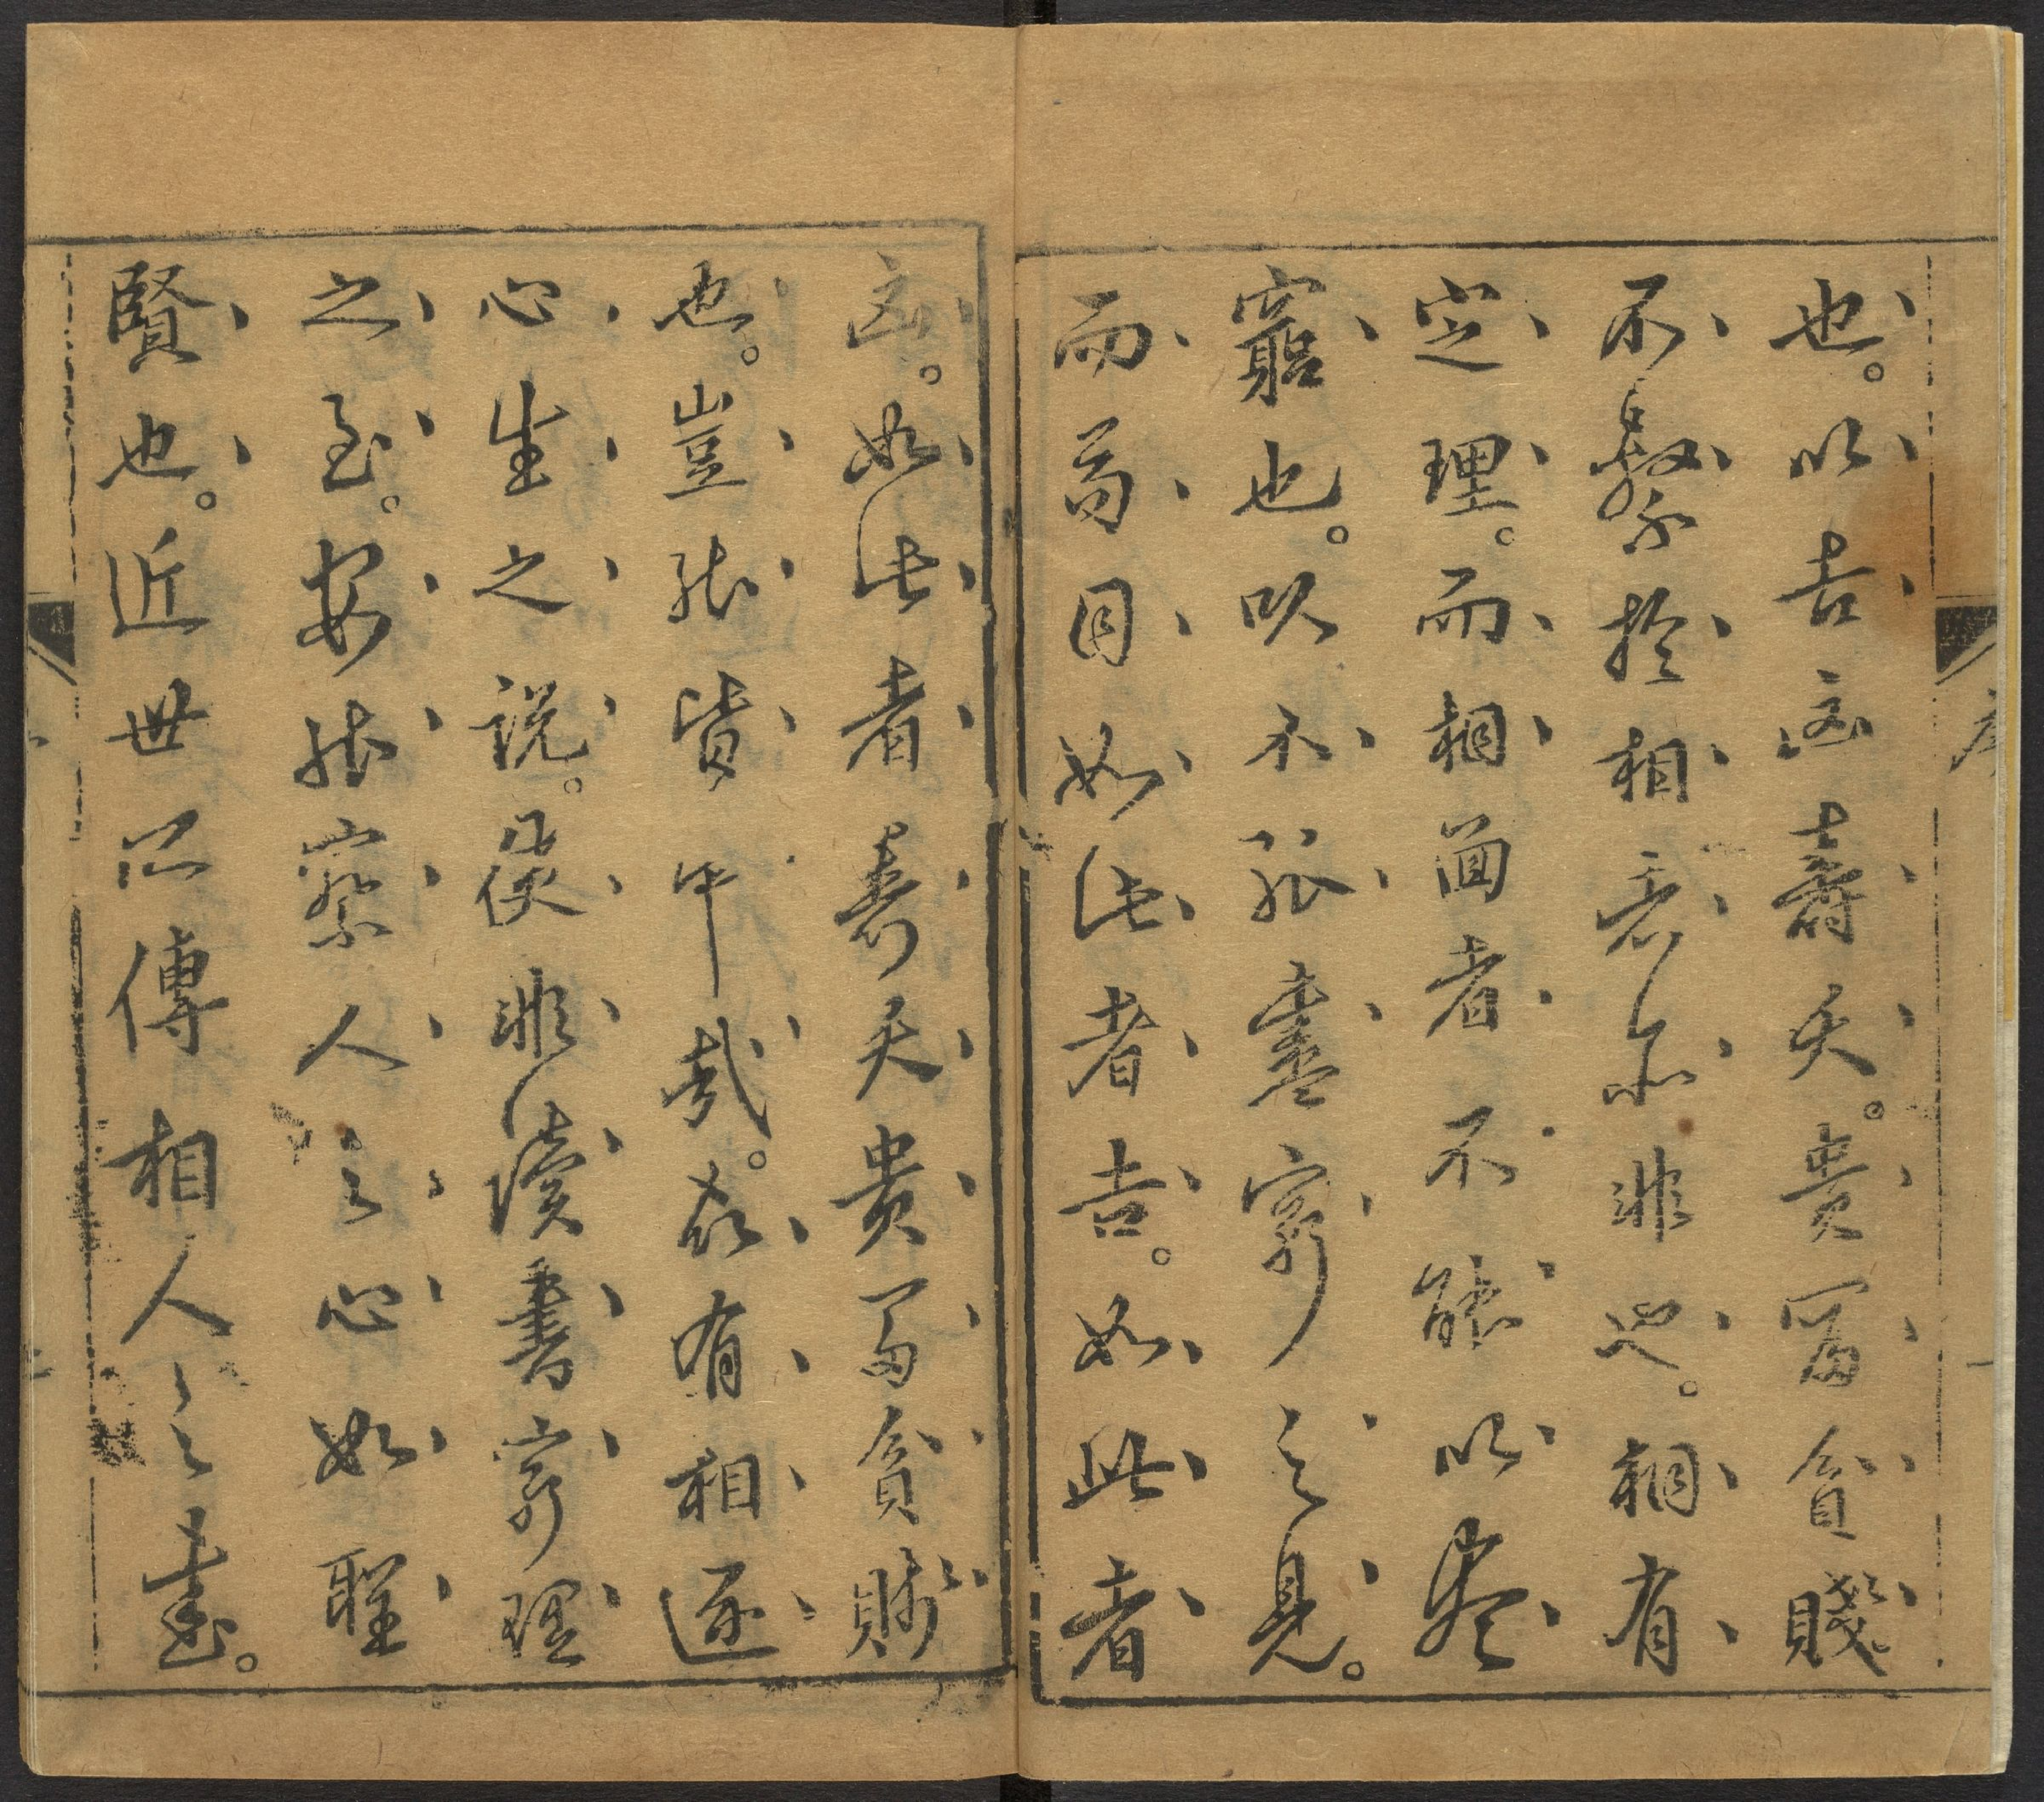 也。以吉凶壽夭。貴冨貧賤
不繫扵相者亦非也。相有
定理。而相面者不能以
竆也。以不能盡窮之見。
而苟目如此者吉。如此者
凶。如此者壽夭貴富貧賤
也。豈能皆中哉。故有相逐
心生之説。非讀書窮理
之至。安能察人之心如聖
賢也。近世所傳相人之書。
序